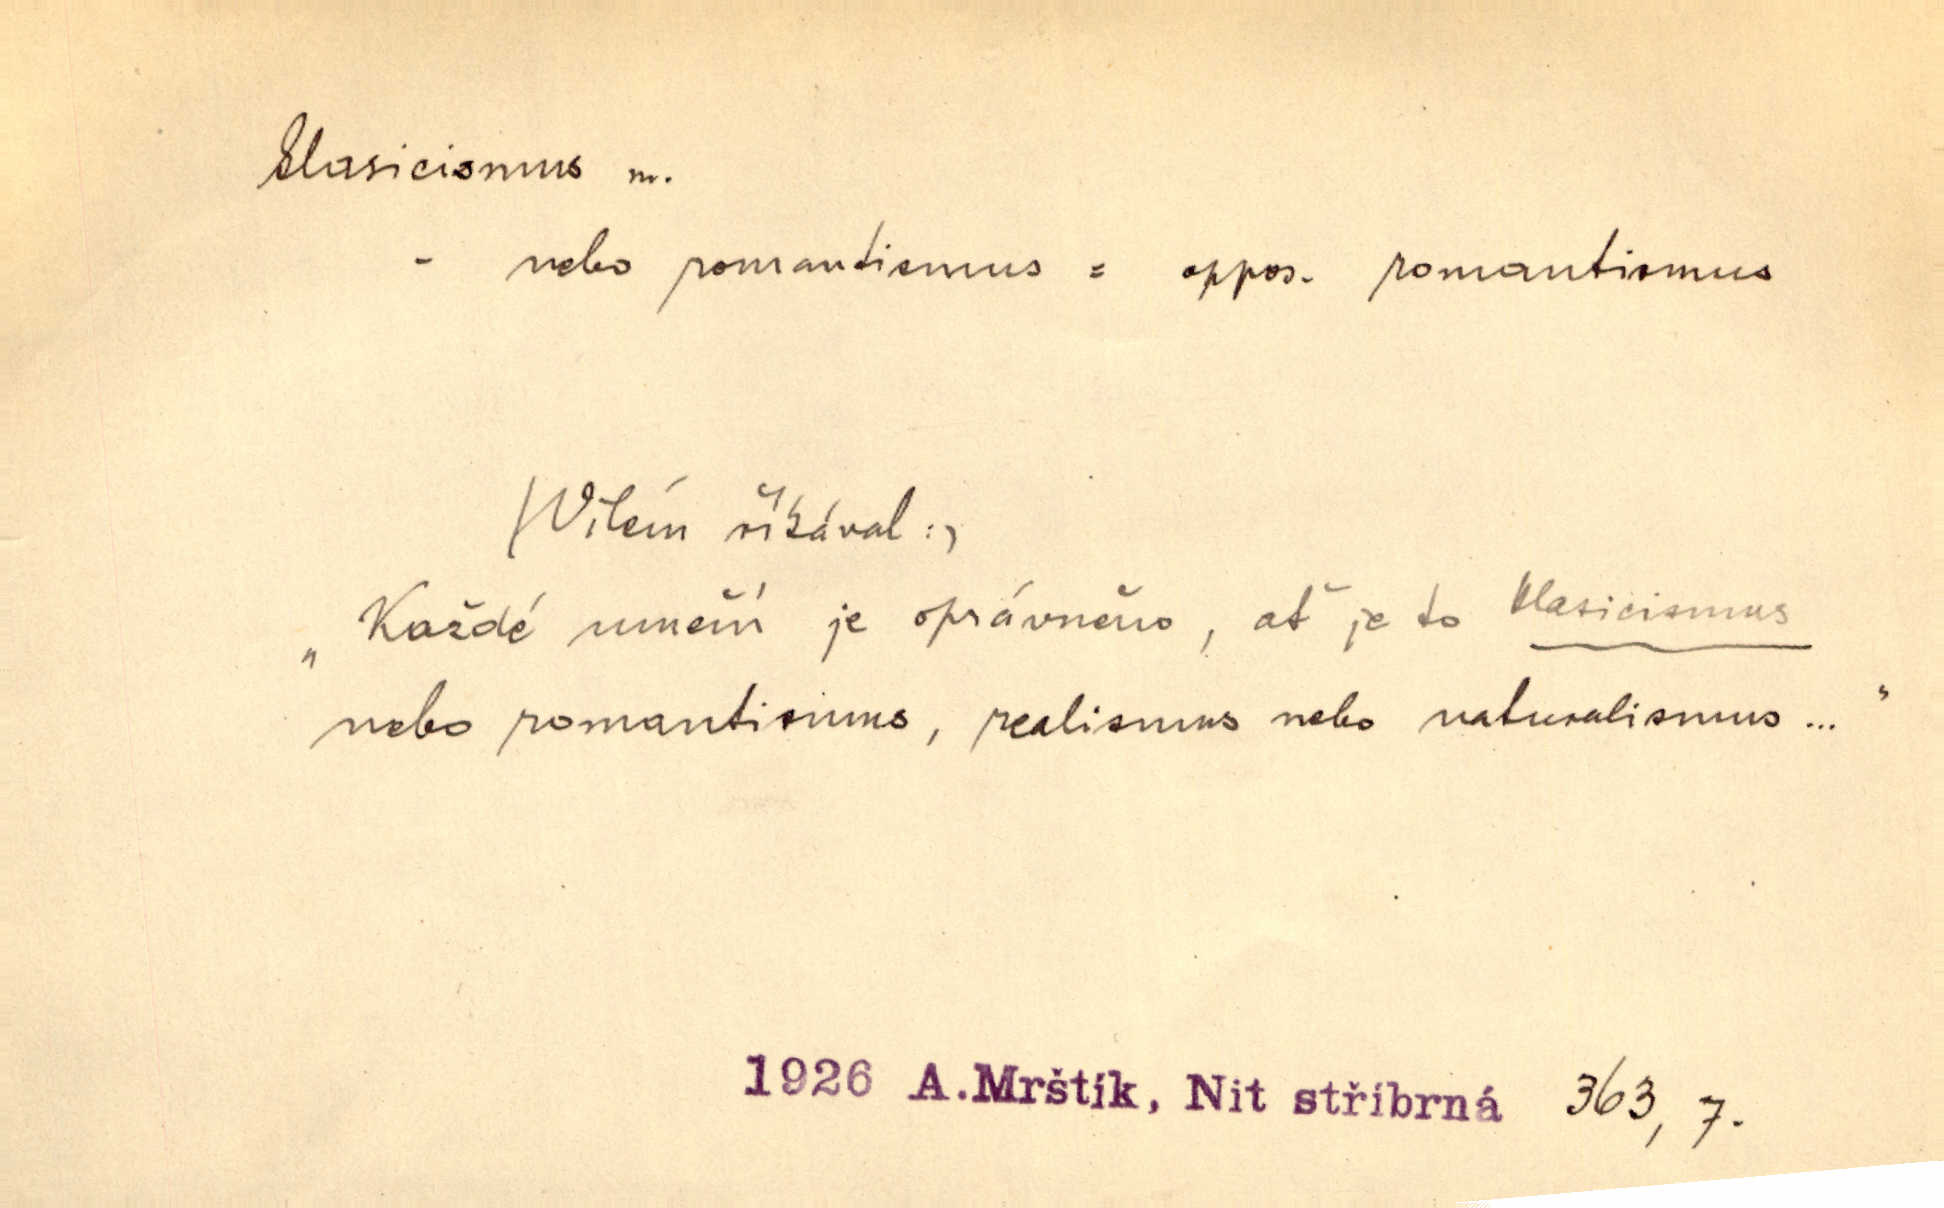 klasicismus m.
- nebo romantismus = oppos. romantismus
(Vilém říkával:)
„Každé umění je oprávněno, ať je to klasicismus
nebo romantismus, realismus nebo naturalismus ..."
1926 A.Mrštík, Nit stříbrná 363, 7.